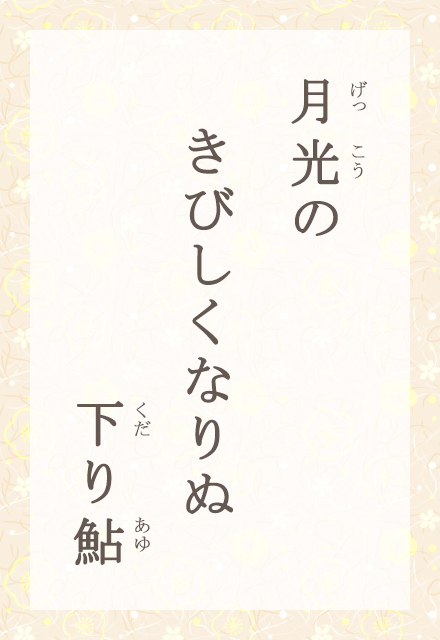 月光の
げっこう
きびしくなりぬ
下り鮎
くだ
あゆ